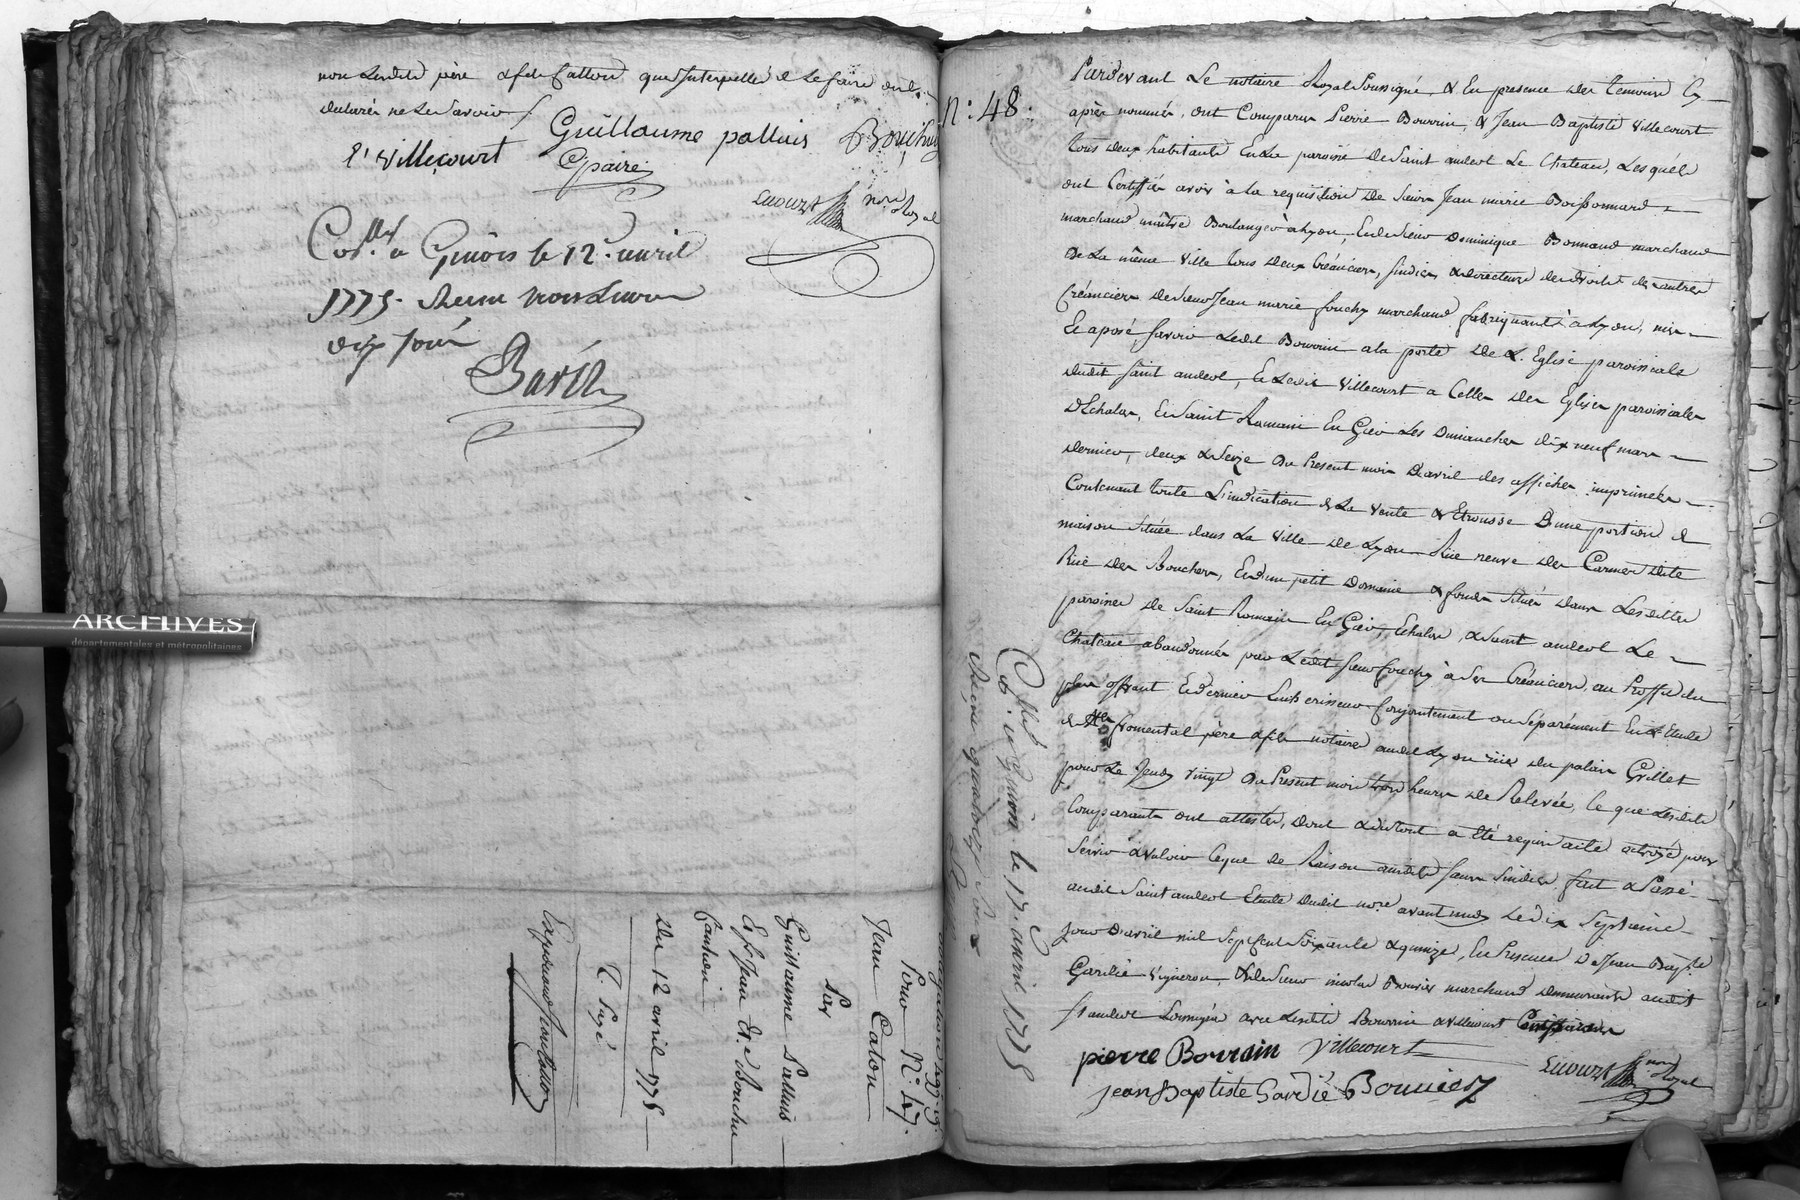 non Lesdits père & fils Catton que Interpellé de Le faire ont
declarés ne Le Savoir /.
Guillaume palluis Bouchu
l'Villecourt
Cpaire
Luourt nore Royal
Con.lle a Givors le 12. avril
1775. Recu trois Livres
dix sous
Barit
Pour N.º 47.
Jean Caton
Par
Guillaume Palluis
Et Jean de. Bouchu
Caution
Du 12 avril 1775
Expedié
ARCHIVES
départementales et métropolitaines
N.º 48.
Pardevant Le notaire Royal Soussigné, & En presence des temoins Cy
après nommés, ont Comparus Pierre Bourrin, & Jean Baptiste Villecourt
tous deux habitants En La paroisse De Saint andeol Le Chateau, Lesquels
ont Certiffié avoir à La requisition De Sieur Jean marie Boissonnard
marchand maitre Boulanger à Lyon, Et de Sieur Dominique Bonnand marchand
De La même Ville tous deux Créanciers, Sindics & directeurs des droits des autres
Créanciers De Sieur Jean marie fouchy marchand fabriquant à Lyon, mis
Et aposé, Savoir Ledit Bourrin a la porte De L'Eglise paroissiale
dudit Saint andeol, Et Ledit Villecourt a Celles des Eglises paroissiales
D'Echalas, Et Saint Romain En Gier Les Dimanches dix neuf mars
dernier, deux & Seize Du Present mois D'avril des affiches imprimées
Contenant toute L'indication de La Vente & Etrousse D'une portion de
maison Située dans La Ville De Lyon Rüe neuve des Carmes dite
Rüe des Bouchers, Et d'un petit Domaine & fonds Situés dans Lesdittes
paroisses De Saint Romain En Gier, Echalas, & Saint andeol Le
Chateau abandonnés par Ledit Sieur fouchy à Ses Créanciers, au Proffit du
plus offrant Et dernier Encherisseur Conjointement ou Séparément En L'Etude
de Mes fromental père & fils notaires audit Lyon rüe du palais Grillet
pour Le Jeudy Vingt Du Present mois trois heures De Relevée, Ce que Lesdits
Comparants ont attestés, dont & du tout a été requis acte octroyé pour
Servir & valoir Ce que De Raison auxdits Sieurs Sindics. fait & Passé
audit Saint andeol Etude dudit nore. avant midy Le Dix Septieme
jour D'avril mil Sept Cent Soixante & quinze, En Presence De Jean Bapte
Gardié Vigneron, & de Sieur nicolas Bouvier marchand demeurants audit
St andeol Soussignés avec Lesdits Bourrin & Villecourt
pierre Borrain Villecourt
Luourt nore Royal
jean Baptiste Gardié Bouvier
Con.lle a Givors le 17. avril 1775
Recu quatorze Sous